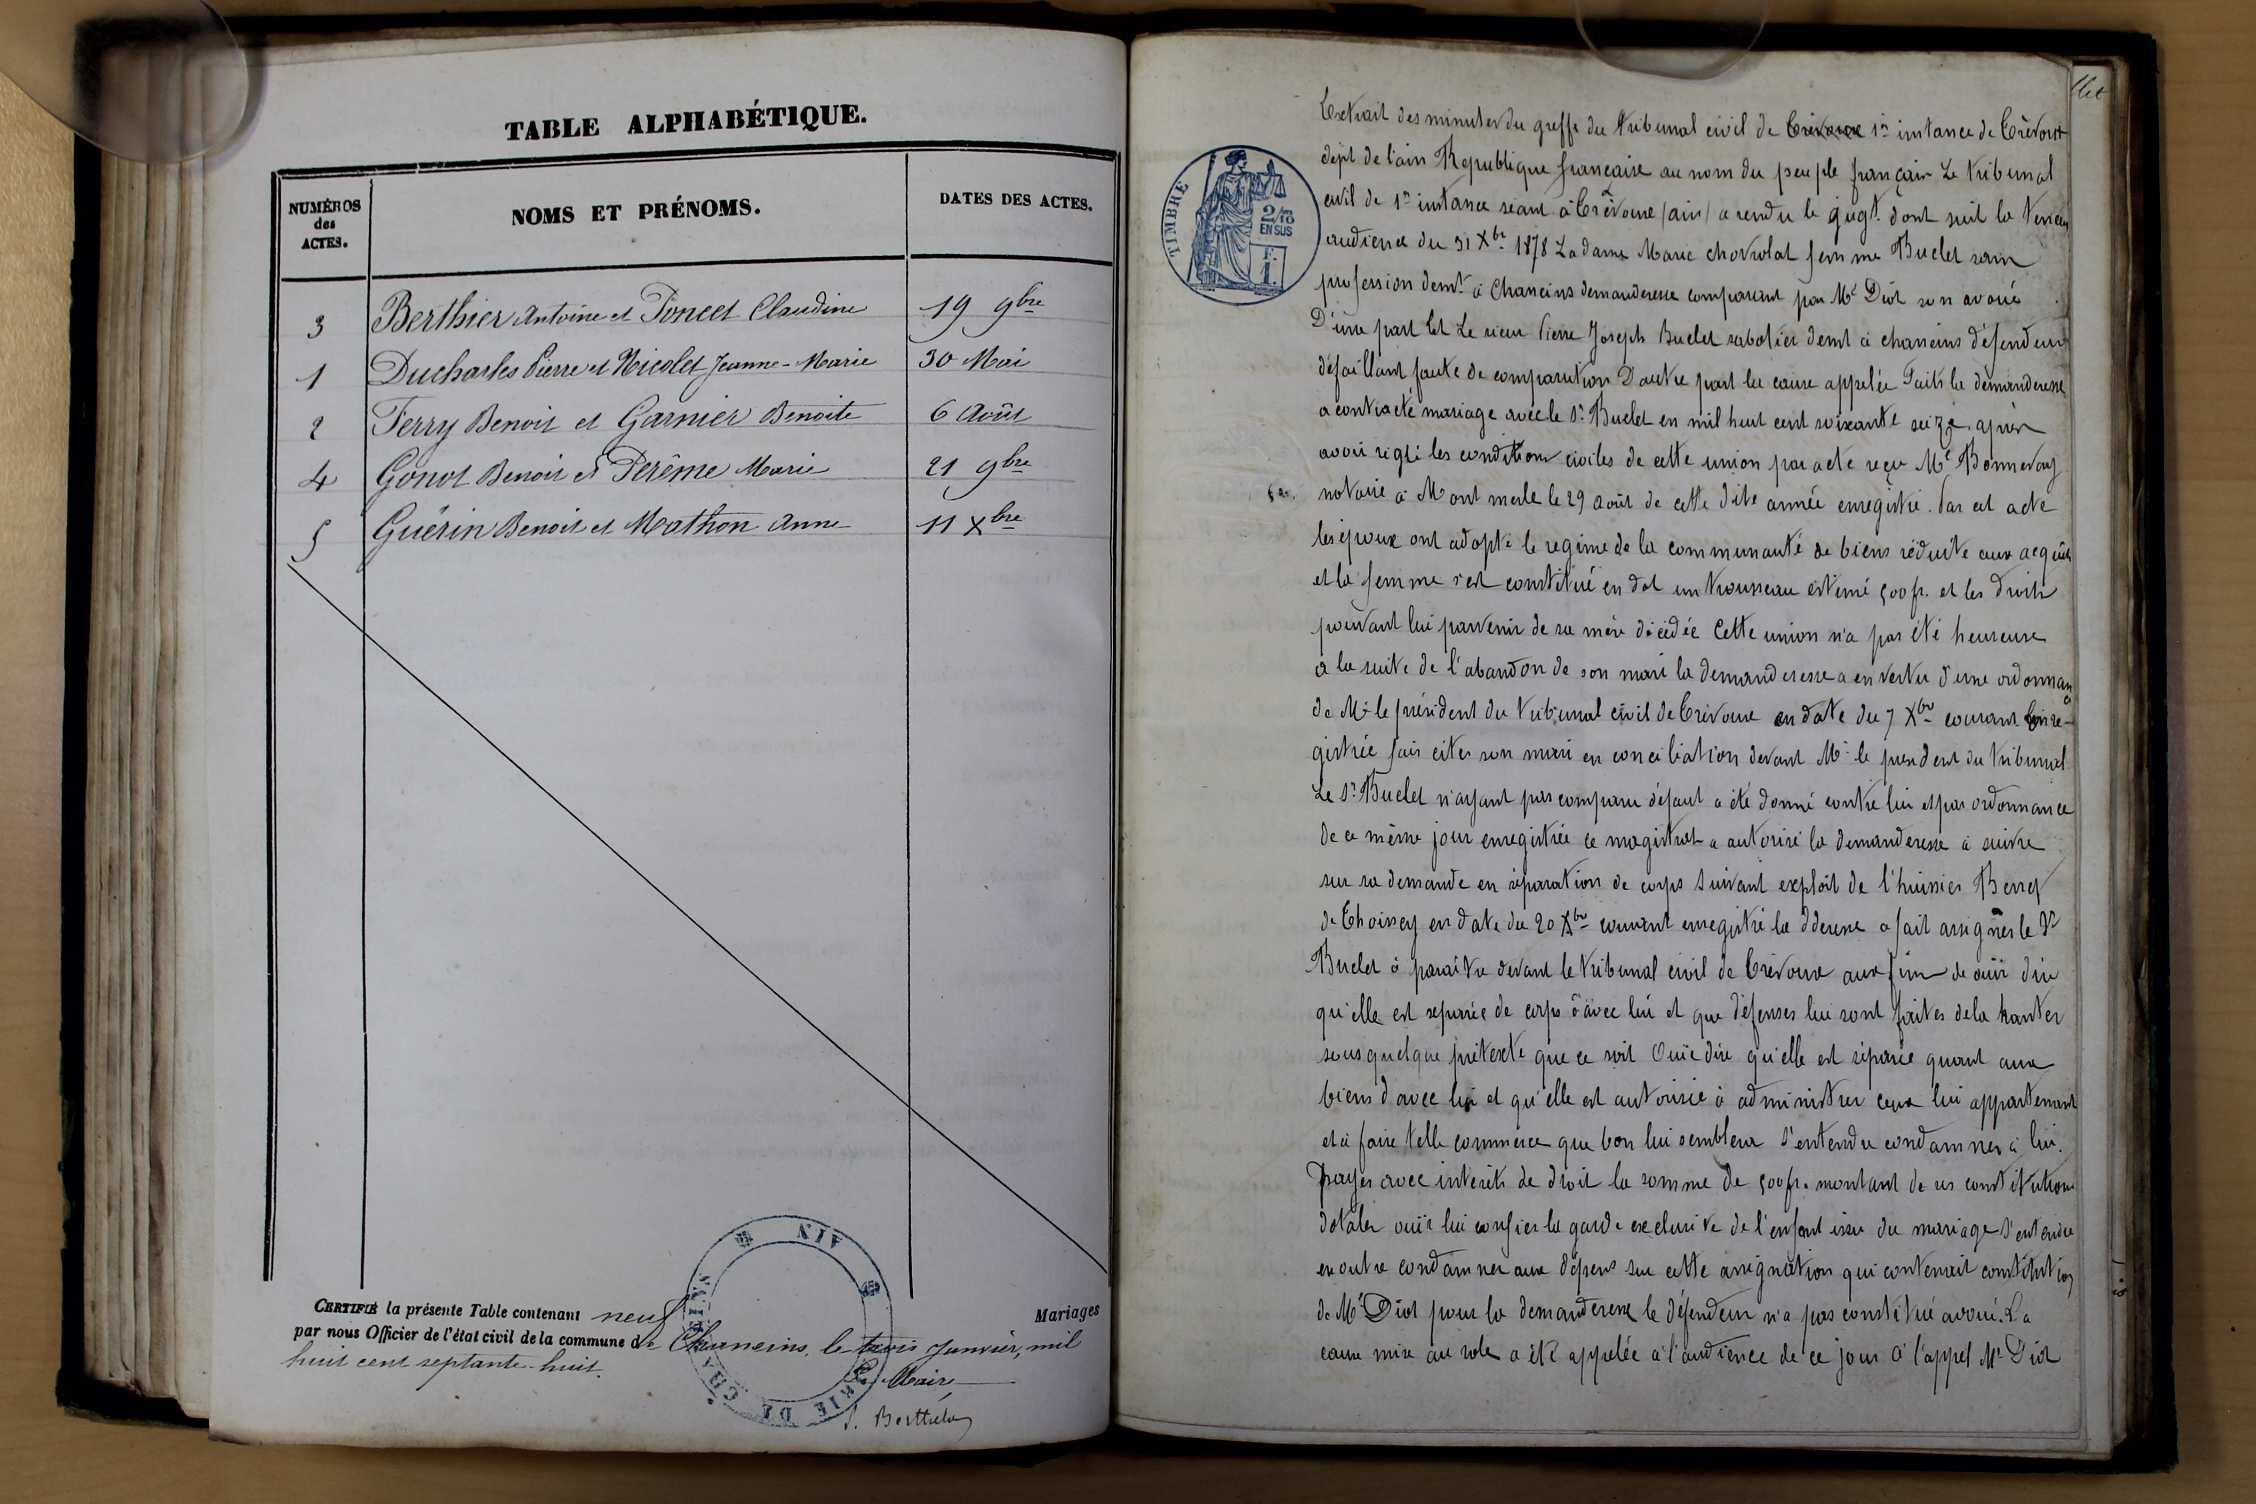 TABLE ALPHABÉTIQUE.
NUMÉROS des ACTES.
NOMS ET PRÉNOMS.
DATES DES ACTES.
3 Berthier Antoine et Poncet Claudine 19 9bre
1 Ducharles Pierre et Nicolet Jeanne-Marie 30 Mai
2 Ferry Benoit et Garnier Benoite 6 Août
4 Gonot Benoit et Perême Marie 21 9bre
5 Guérin Benoit et Mathon Anne 11 Xbre
CERTIFIÉ la présente Table contenant neuf Mariages
par nous Officier de l'état civil de la commune de Chaneins, le trois Janvier, mil
huit cent septante-huit.
Le Maire
MAIRIE DE CHANEINS AIN
TIMBRE
2/10
EN SUS
F.
1.
Extrait des minutes du greffe du tribunal civil de Trévoux 1re instance de Trévoux
dépt de l'ain République française au nom du peuple français Le tribunal
civil de 1re instance séant à Trévoux (ain) a rendu le jugt. dont suit la teneur
audience du 31 Xbre 1878 La dame Marie chovrolat femme Buclet sans
profession demt. à Chaneins demanderesse comparant par Me Diot son avoué
D'une part Et Le sieur Pierre Joseph Buclet sabotier demt à chaneins défendeur
défaillant faute de comparution D'autre part la cause appelée Faits la demanderesse
a contracté mariage avec le Sr. Buclet en mil huit cent soixante seize après
avoir réglé les conditions civiles de cette union par acte reçu Me Bonnevay
notaire à Montmerle le 29 août de cette dite année enregistré. Par cet acte
les époux ont adopté le regime de la communauté de biens réduite aux acquêts
et la femme s'est constitué en dot un trousseau estimé 500 fr. et les droits
pouvant lui parvenir de sa mère décédée Cette union n'a pas été heureuse
à la suite de l'abandon de son mari la demanderesse a en vertu d'une ordonnance
de Mr le président du tribunal civil de Trévoux en date du 7 Xbre courant Enre-
gistrée fait citer son mari en conciliation devant Mr le president du tribunal
Le Sr. Buclet n'ayant pas comparu défaut a été donné contre lui et par ordonnance
de ce même jour enregistrée ce magistrat a autorisé la demanderesse à suivre
sur sa demande en séparation de corps Suivant exploit de l'huissier
de Thoissey en date du 20 Xbre courant enregistré la dderesse a fait assigner le Sr
Buclet à paraître devant le tribunal civil de Trévoux aux fins de ouïr dire
qu'elle est separée de corps d'avec lui et que défenses lui sont faites de la hanter
sous quelque prétexte que ce soit Ouïr dire qu'elle est séparée quant aux
biens d'avec lui et qu'elle est autorisée à administrer ceux lui appartenant
et à faire telle commerce que bon lui semblera S'entendre condamner à lui
payer avec intérêts de droit la somme de 500 fr. montant de ses constitutions
dotales ouïr lui confier la garde exclusive de l'enfant issu du mariage S'entendre
en outre condamner aux dépens sur cette assignation qui contenait constitution
de Me Diot pour la demanderesse le défendeur n'a pas constitué avoué. La
cause mise au role a été appelée à l'audience de ce jour à l'appel Me Diot